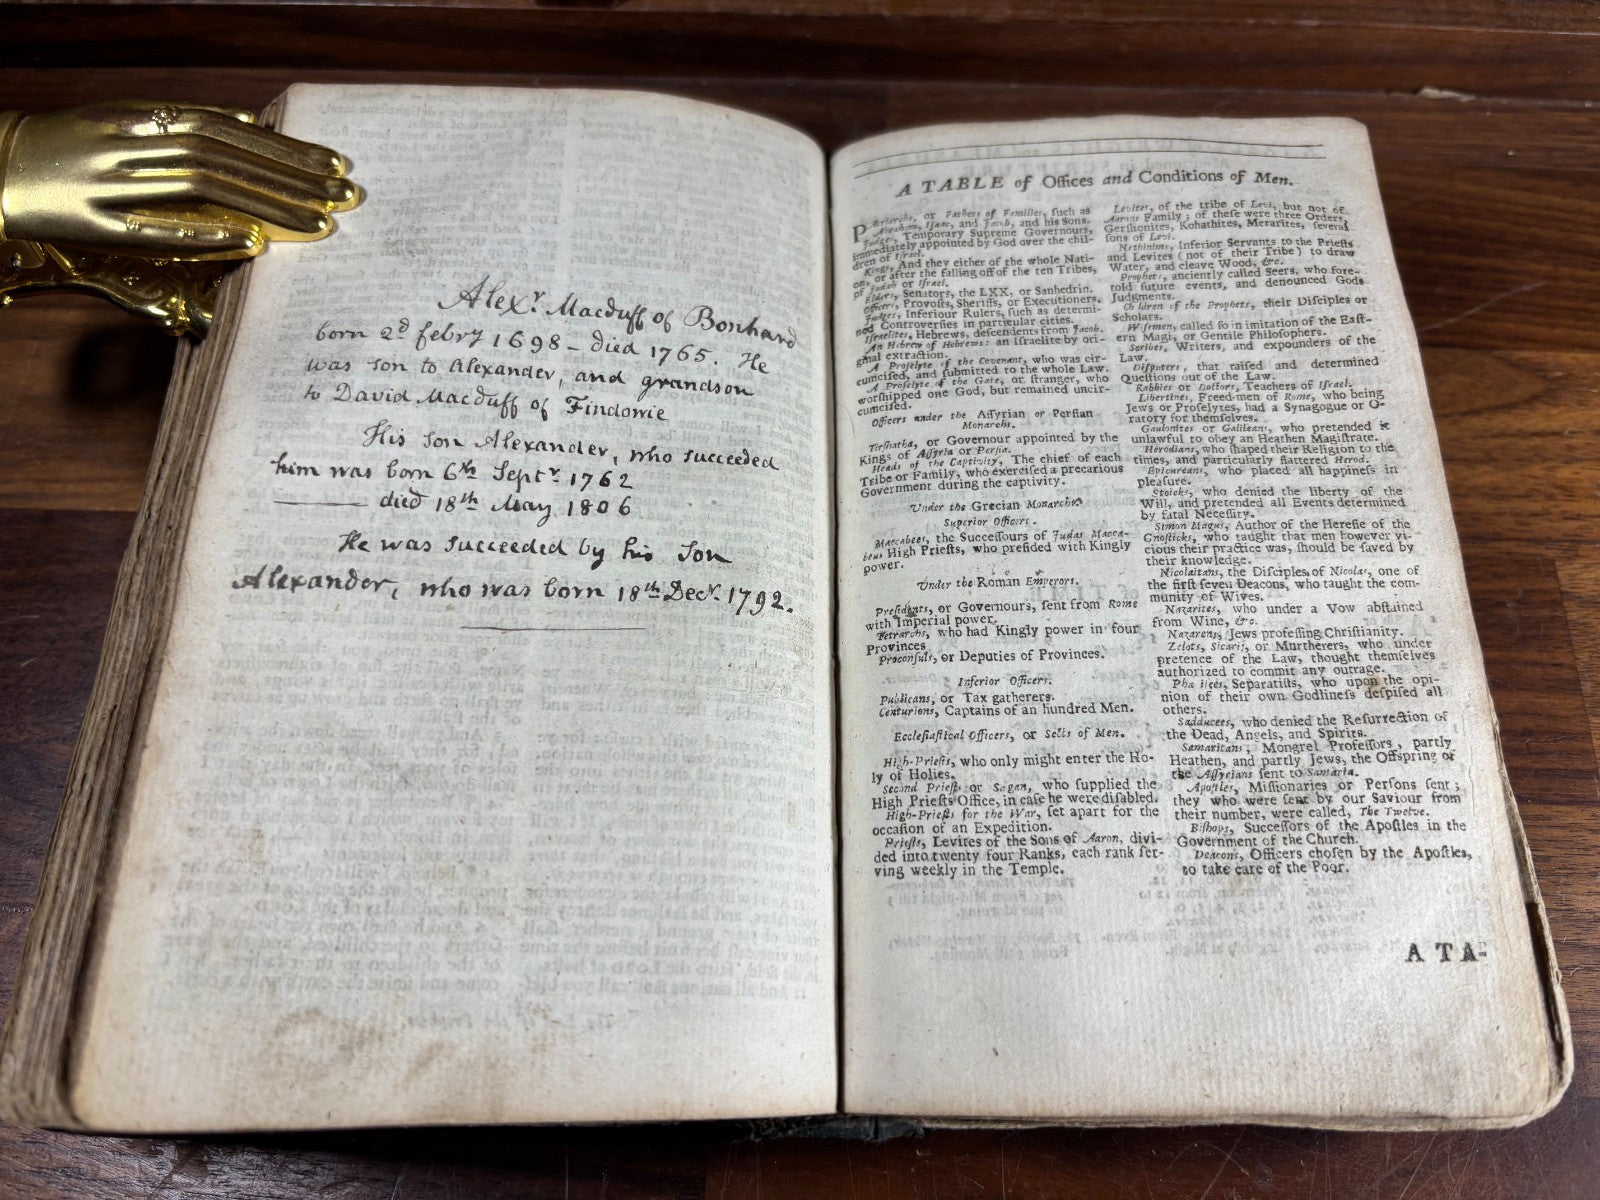 Alexr. Macduff of Bonhard
born 2d febry 1698 – died 1765. He
was son to Alexander, and grandson
to David Macduff of Findowie
His son Alexander, who succeeded
him was born 6th Septr 1762
——— died 18th May 1806
He was succeeded by his son
Alexander, who was born 18th Decr. 1792.
A TABLE of Offices and Conditions of Men.
PAtriarchs, or Fathers of Families, such as
Abraham, Isaac, and Jacob, and his Sons.
Judges, Temporary Supreme Governours,
immediately appointed by God over the chil-
dren of Israel.
Kings, And they either of the whole Nati-
on, or after the falling off of the ten Tribes,
of Judah or Israel.
Elders, Senators, the LXX, or Sanhedrin.
Officers, Provosts, Sheriffs, or Executioners.
Judges, Inferiour Rulers, such as determi-
ned Controversies in particular cities.
Israelites, Hebrews, descendents from Jacob.
An Hebrew of Hebrews: an Israelite by ori-
ginal extraction.
A Proselyte of the Covenant, who was cir-
cumcised, and submitted to the whole Law.
A Proselyte of the Gate, or stranger, who
worshipped one God, but remained uncir-
cumcised.
Officers under the Assyrian or Persian
Monarchs.
Tirshatha, or Governour appointed by the
Kings of Assyria or Persia.
Heads of the Captivity, The chief of each
Tribe or Family, who exercised a precarious
Government during the captivity.
Under the Grecian Monarchs.
Superior Officers.
Maccabees, the Successours of Judas Macca-
beus High Priests, who presided with Kingly
power.
Under the Roman Emperors.
Presidents, or Governours, sent from Rome
with Imperial power.
Tetrarchs, who had Kingly power in four
Provinces
Proconsuls, or Deputies of Provinces.
Inferior Officers.
Publicans, or Tax gatherers.
Centurions, Captains of an hundred Men.
Ecclesiastical Officers, or Sects of Men.
High-Priests, who only might enter the Ho-
ly of Holies.
Second Priest or Sagan, who supplied the
High Priests Office, in case he were disabled.
High-Priests for the War, set apart for the
occasion of an Expedition.
Priests, Levites of the Sons of Aaron, divi-
ded into twenty four Ranks, each rank ser-
ving weekly in the Temple.
Levites, of the tribe of Levi, but not of
Aarons Family; of these were three Orders,
Gershonites, Kohathites, Merarites, several
sons of Levi.
Nethinims, Inferior Servants to the Priests
and Levites (not of their Tribe) to draw
Water, and cleave Wood, &c.
Prophets, anciently called Seers, who fore-
told future events, and denounced Gods
Judgments.
Children of the Prophets, their Disciples or
Scholars.
Wisemen, called so in imitation of the East-
ern Magi, or Gentile Philosophers.
Scribes, Writers, and expounders of the
Law.
Disputers, that raised and determined
Questions out of the Law.
Rabbies or Doctors, Teachers of Israel.
Libertines, Freed-men of Rome, who being
Jews or Proselytes, had a Synagogue or O-
ratory for themselves.
Gaulonites or Galileans, who pretended it
unlawful to obey an Heathen Magistrate.
Herodians, who shaped their Religion to the
times, and particularly flattered Herod.
Epicureans, who placed all happiness in
pleasure.
Stoicks, who denied the liberty of the
Will, and pretended all Events determined
by fatal Necessity.
Simon Magus, Author of the Heresie of the
Gnosticks, who taught that men however vi-
cious their practice was, should be saved by
their knowledge.
Nicolaitans, the Disciples of Nicolas, one of
the first seven Deacons, who taught the com-
munity of Wives.
Nazarites, who under a Vow abstained
from Wine, &c.
Nazarens, Jews professing Christianity.
Zelots, Sicarij, or Murtherers, who under
pretence of the Law, thought themselves
authorized to commit any outrage.
Pharisees, Separatists, who upon the opi-
nion of their own Godliness despised all
others.
Sadducees, who denied the Resurrection of
the Dead, Angels, and Spirits.
Samaritans, Mongrel Professors, partly
Heathen, and partly Jews, the Offspring of
the Assyrians sent to Samaria.
Apostles, Missionaries or Persons sent;
they who were sent by our Saviour from
their number, were called, The Twelve.
Bishops, Successors of the Apostles in the
Government of the Church.
Deacons, Officers chosen by the Apostles,
to take care of the Poor.
A TA-